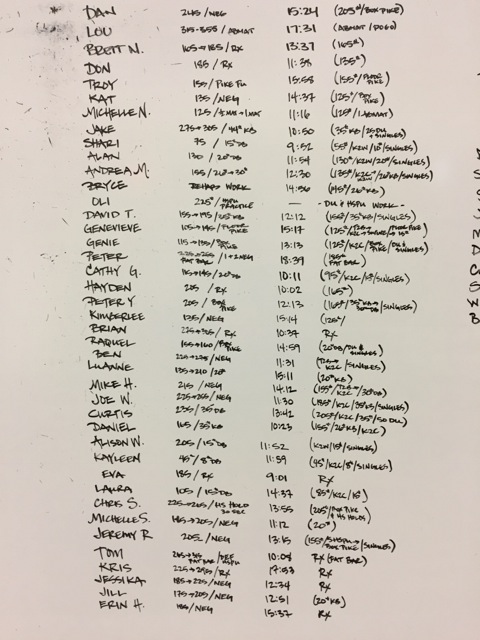 DAN 245/NEG 15:24 (205#/BOX PIKE)
LOU 315-335/ABMAT 17:31 (ABMAT/POGO)
BRETT N. 165→185/RX 13:37 (165#)
DON 185/RX 11:38 (135#)
TROY 155/PIKE PU 15:58 (155#/ PIKE)
KAT 135/NEG 14:37 (125#/BOX PIKE)
MICHELLE N. 125/ 11:16 (125#/1 ABMAT)
JAKE 275→305/44# KB 10:50 (35#KB/ SINGLES)
SHARI 75 / 15#DB 9:52 (55#/K2W/15#/SINGLES)
ALAN 130 / 20#DB 11:54 (130#/K2W/20#/SINGLES)
ANDREA M. 155/26#→30# 12:30 (135#/K2C/ 26#KB/SINGLES)
BRYCE REHAB WORK 14:56 ( /26#KB)
OLI 225#/HSPU PRACTICE — -DU & HSPU WORK-
DAVID T. 155→175/ KB 12:12 (155#/35#KB/SINGLES)
GENEVIEVE 15:17 (125#/
GENIE 115→135/BOX PIKE 13:13 (125#/K2C/BOX PIKE/DU & SINGLES)
PETER FAT BAR / 1+2 NEG 18:39 (185# FAT BAR)
CATHY G. 20#DB 10:11 (95#/K2C/15#/SINGLES)
HAYDEN 205 / RX 10:02 (165#)
PETER Y 205 / BOX PIKE 12:13 (165#/35#KB→ /SINGLES)
KIMBERLEE 135/NEG 15:14 (125#/
BRIAN 225→305/RX 10:37 RX
RAQUEL PIKE 14:59 (20#DB/DU & SINGLES)
BEN 225→235/NEG 11:31 ( K2C /SINGLES)
LUANNE 135→210/20# 15:11 (20#KB)
MIKE H. 215 /NEG 14:12 (155#/ K2C/30#DB)
JOE W. 225→265/NEG 11:30 (185#/K2C/35#KB/SINGLES)
CURTIS 235/35#DB 13:42 (205#/K2C/35#/50 DU)
DANIEL 165/35#KB 10:23 (155#/26#KB/K2C)
ALISON W. 205/15#DB 11:52 (K2W/15#/SINGLES)
KAYLEEN 45#/8#DB 11:59 (45#/K2C/8#/SINGLES)
EVA 185/RX 9:01 RX
LAURA 105 / 15#DB 14:37 (85#/K2C/15#)
CHRIS S. 225→265/HS HOLD 30 SEC 13:55 (205#/BOX PIKE & HS HOLDS)
MICHELLE S. 165→205/NEG 11:12 (20#)
JEREMY R 205/NEG 13:15 (155#/ PIKE/SINGLES)
TOM FAT BAR/DEF HSPU 10:08 RX (FAT BAR)
KRIS 225→295/RX 17:53 RX
JESSIKA 185→225/NEG 12:34 RX
JILL 175→205/NEG 12:51 (20#KB)
ERIN H. 185/NEG 15:37 RX